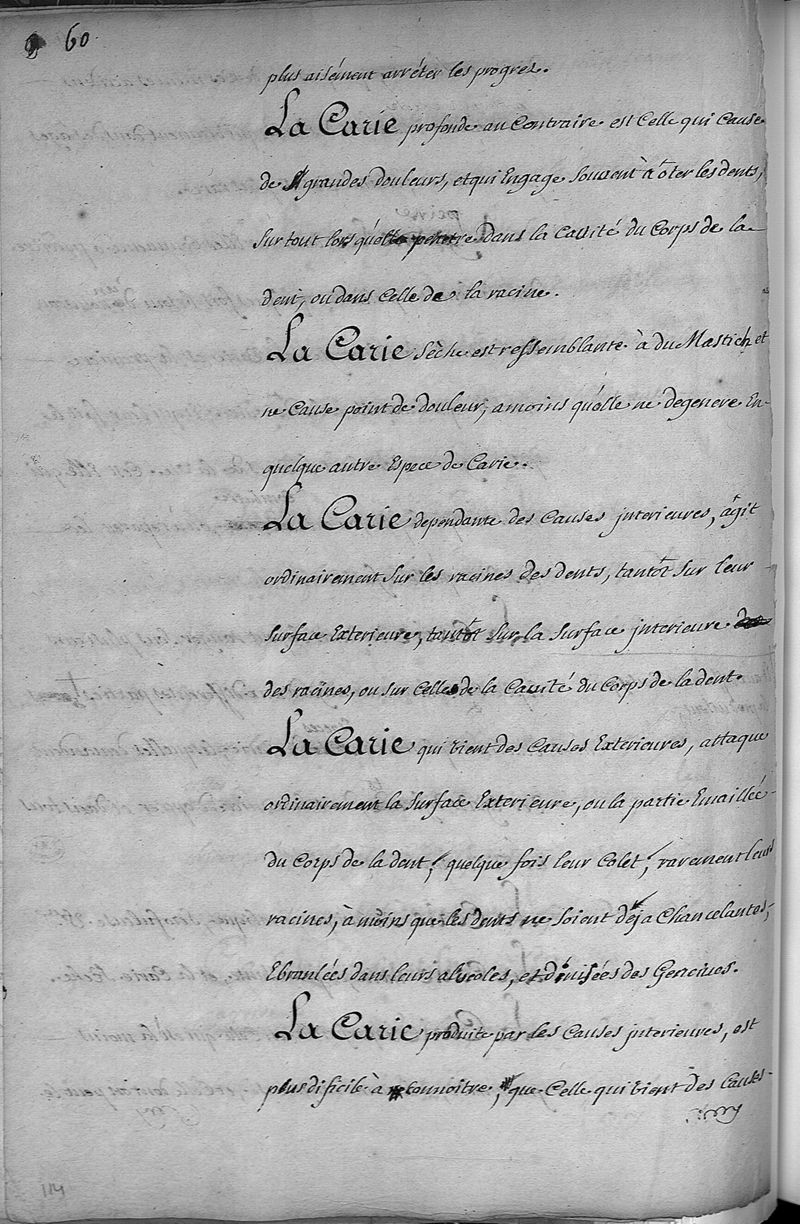 60
plus aisément arrêter les progres.
La Carie profonde au Contraire est Celle qui Cause
de grandes douleurs, et qui Engage souvent à ôter les dents,
sur tout lors qu'elle penetre dans la Cavité du Corps de la
dent, ou dans Celle de la racine.
La Carie sèche est ressemblante à du Mastich et
ne Cause point de douleur, amoins qu'elle ne degenere En
quelque autre Espece de Carie.
La Carie dependante des Causes jnterieures, âgit
ordinairement sur les racines des dents, tantôt sur leur
surface Exterieure, tantôt sur la surface jnterieure
des racines, ou sur Celle de la Cavité du Corps de la dent.
La Carie qui vient des Causes Exterieures, attaque
ordinairement la surface Exterieure, ou la partie Emaillée
du Corps de la dent, quelque fois leur Colet, rarement leurs
racines, à moins que les dents ne soient déja Chancelantes,
Ebranlées dans leurs alveoles, et dénuées des Gencives.
La Carie produite par les Causes jnterieures, est
plus dificile à connoitre, que Celle qui vient des Causes
114